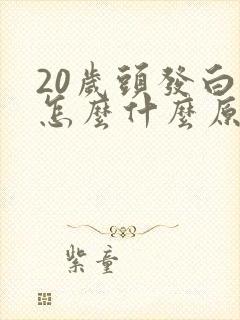 20歲頭發白
怎麼什麼原
紫童